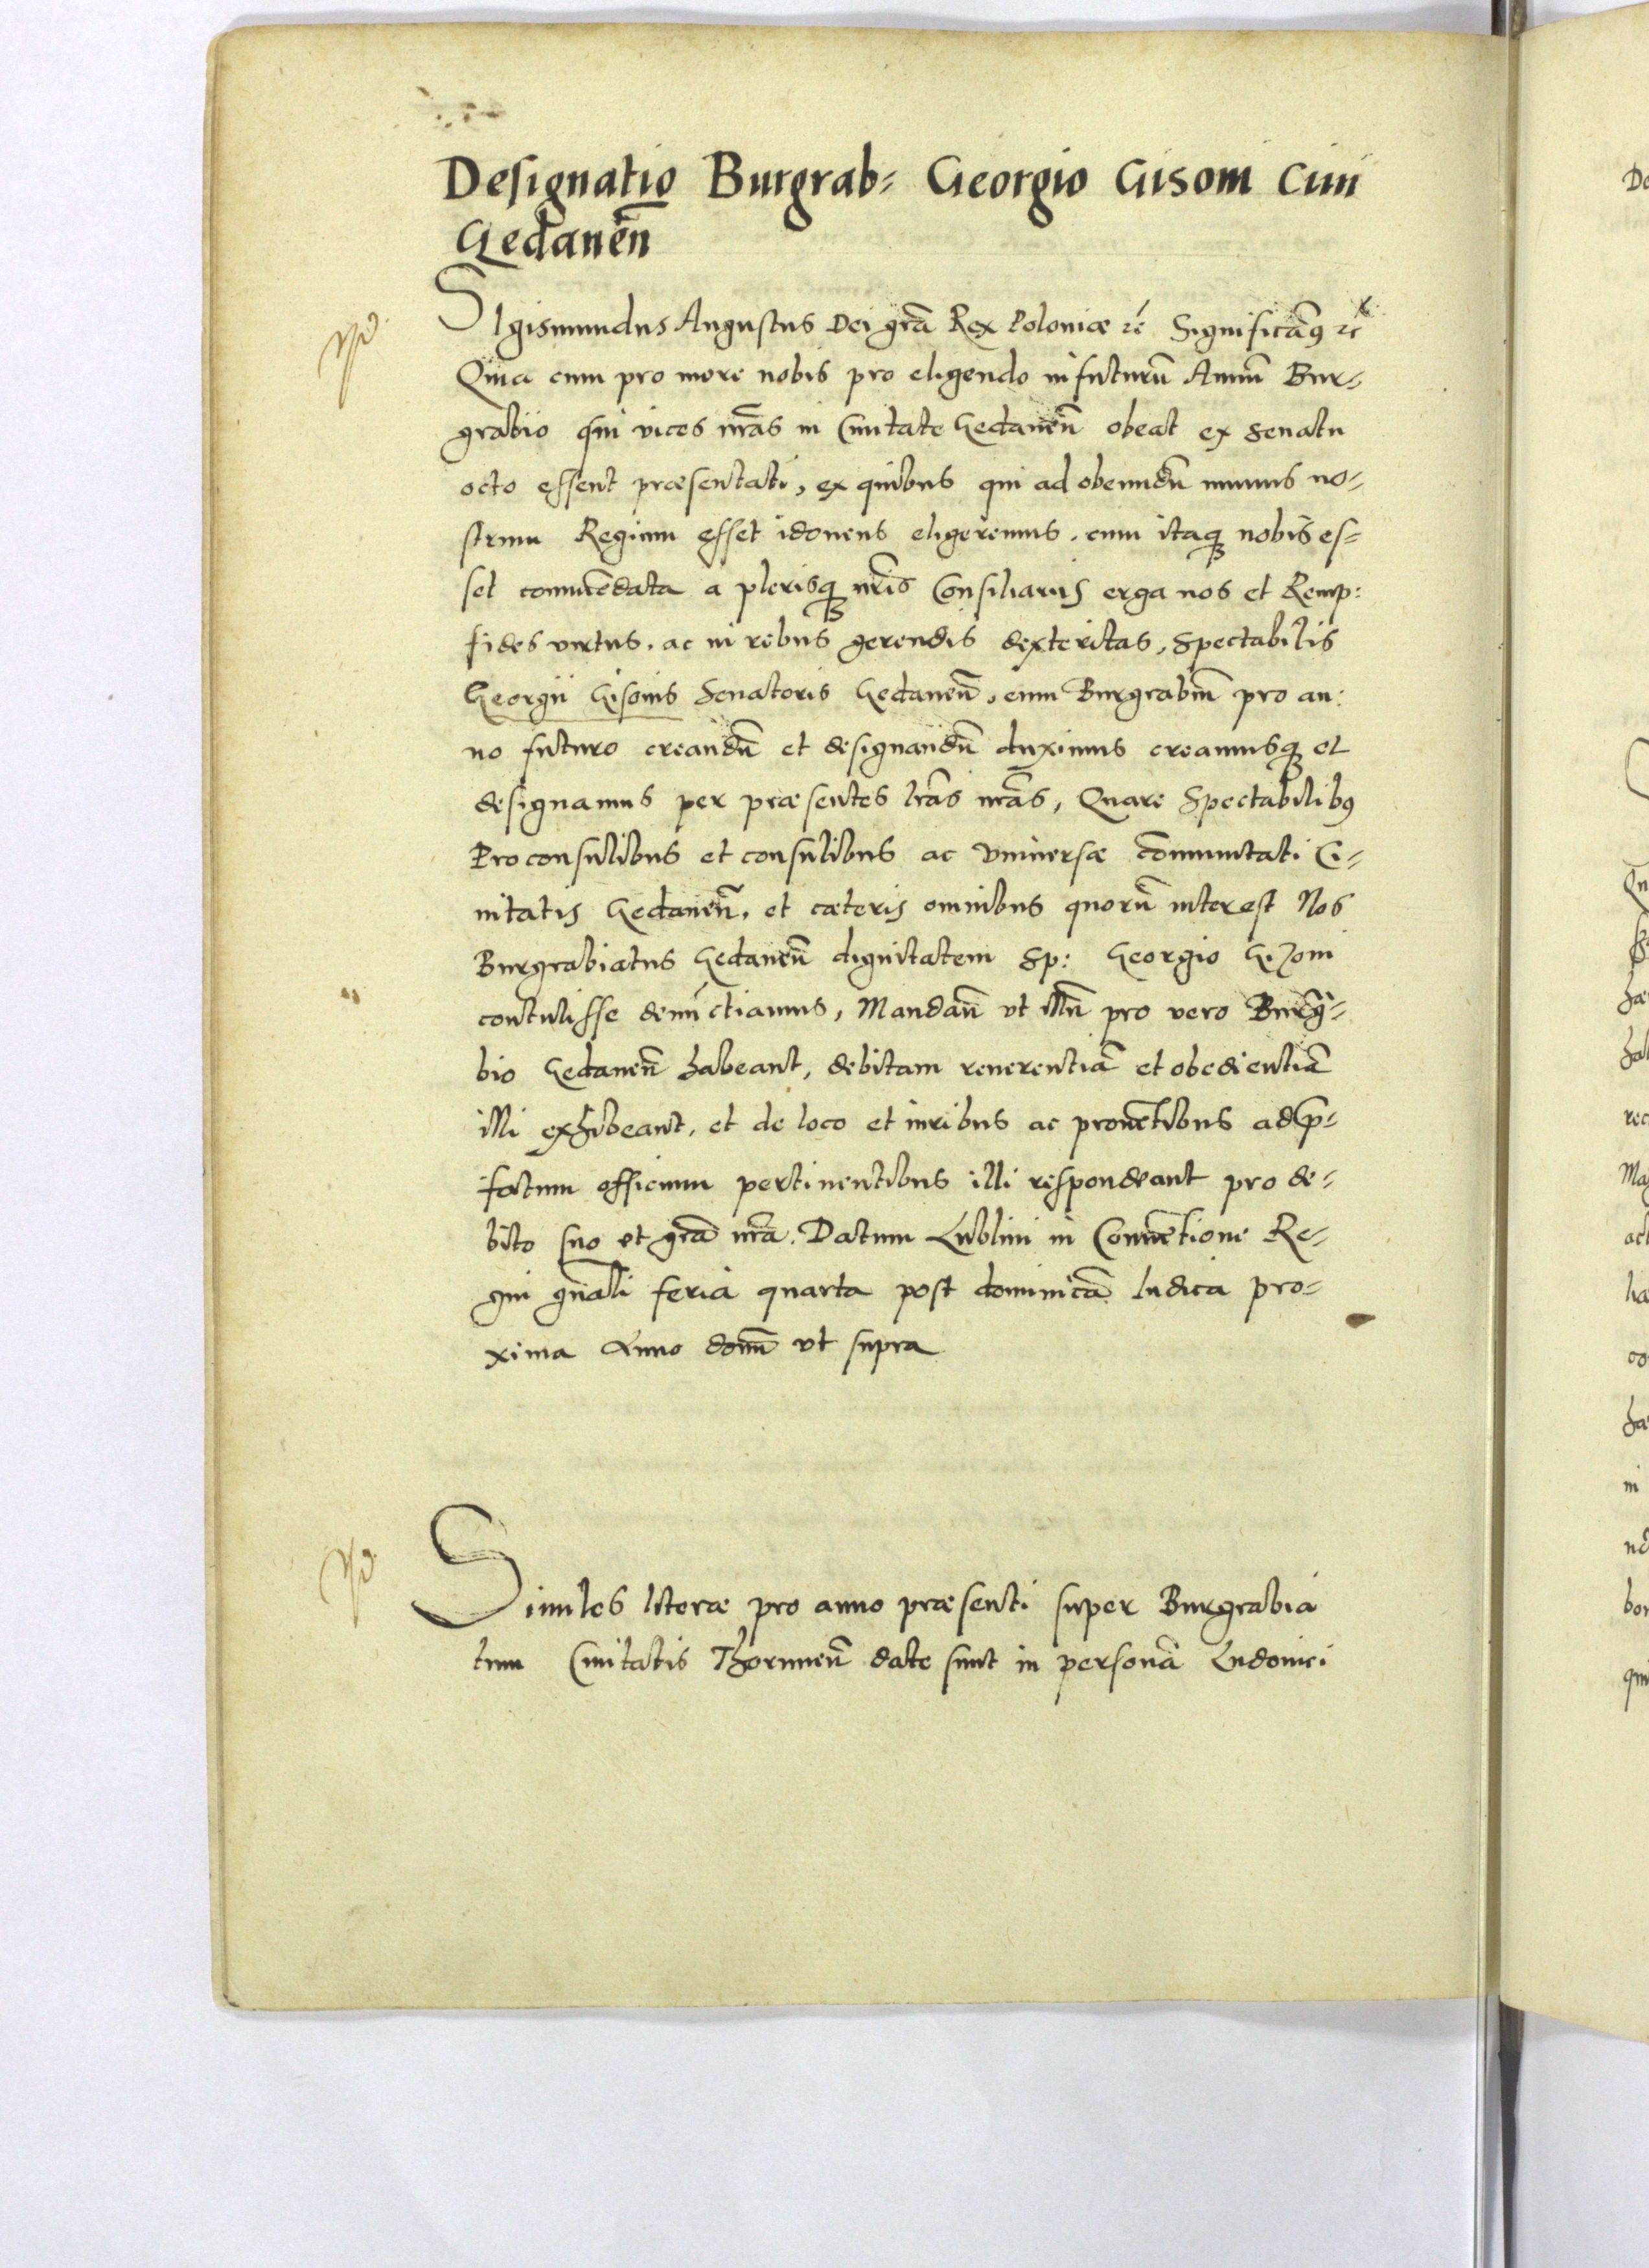 Designatio Burgrab= Georgio Gisoni Ciui
Gedaneñ
SIgismundus Augustus Dei grã Rex Poloniæ rć Significamꝰ rć
Quia cum pro more nobis pro eligendo in futurũ Annũ Bur=
grabio qui vices nrãs in Ciuitate Gedaneñ obeat ex Senatu
octo essent præsentati, ex quibus qui ad obeundũ munus no=
strum Regium esset idoneus eligeremus. cum itaqꝫ nobis es=
set commẽdata a plerisqꝫ nrĩs Consiliarijs erga nos et Remp:
fides virtus. ac in rebus gerendis dexteritas, Spectabilis
Georgii Gisonis Senatoris Gedaneñ, eum Burgrabiũ pro an:
no futuro creandũ et designandũ duximus creamusqꝫ et
designamus per præsentes lrãs nrãs, Quare Spectabilibꝰ
Proconsulibus et consulibus ac Vniuersæ cõmunitati Ci=
uitatis Gedaneñ. et cæteris omnibus quorũ interest Nos
Burgrabiatus Gedaneñ dignitatem Sp: Georgio Gizoni
contulisse denũctiamus, Mandañ vt illũ pro vero Burgr̃=
bio Gedaneñ habeant, debitam reuerentiã et obedientiã
illi exhibeant. et de loco et iuribus ac prouẽtibus ad p̃=
fatum officium pertinentibus illi respondeant pro de=
bito suo et grã nrã. Datum Lublini in Conuẽtione Re=
gni gñali feria quarta post dominicã Iudica pro=
xima Anno domĩ vt supra
Similes literæ pro anno præsenti super Burgrabia
tum Ciuitatis Thoruneñ date sunt in personã Ludouici